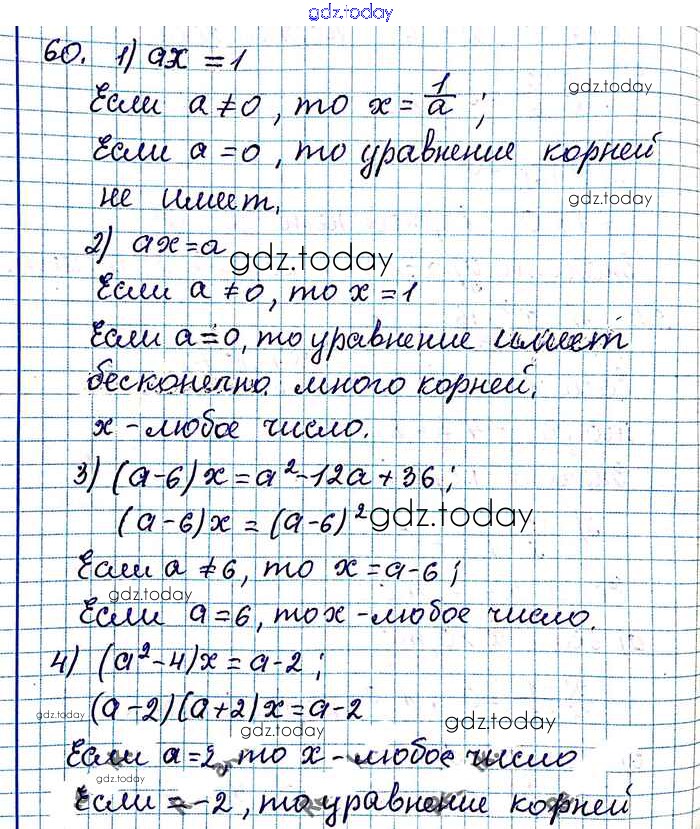 gdz.today
60. 1) ax = 1
gdz.today
Если a ≠ 0, то x = 1/a ;
Если a = 0, то уравнение корней
gdz.today
не имеет.
2) ax = a
gdz.today
Если a ≠ 0, то x = 1
Если a = 0, то уравнение имеет
бесконечно много корней.
x - любое число.
3) (a-6)x = a² - 12a + 36 ;
(a-6)x = (a-6)²
gdz.today
Если a ≠ 6, то x = a-6 ;
gdz.today
Если a = 6, то x - любое число.
4) (a² - 4)x = a - 2 ;
gdz.today
(a-2)(a+2)x = a-2
gdz.today
gdz.today
Если a = 2, то x - любое число
gdz.today
Если = -2, то уравнение корней